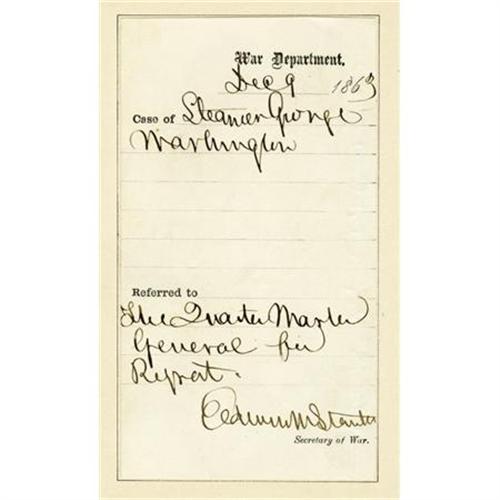 War Department.
Dec 9 1863
Case of Steamer George
Washington
Referred to
The Quarter Master
General for
Report.
Edwin M Stanton
Secretary of War.